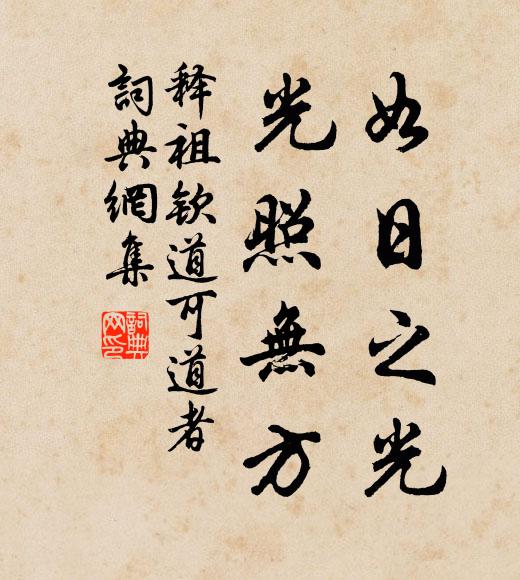 如日之光
光照無方
释祖钦道可道者
詞典網集
詞典
网印